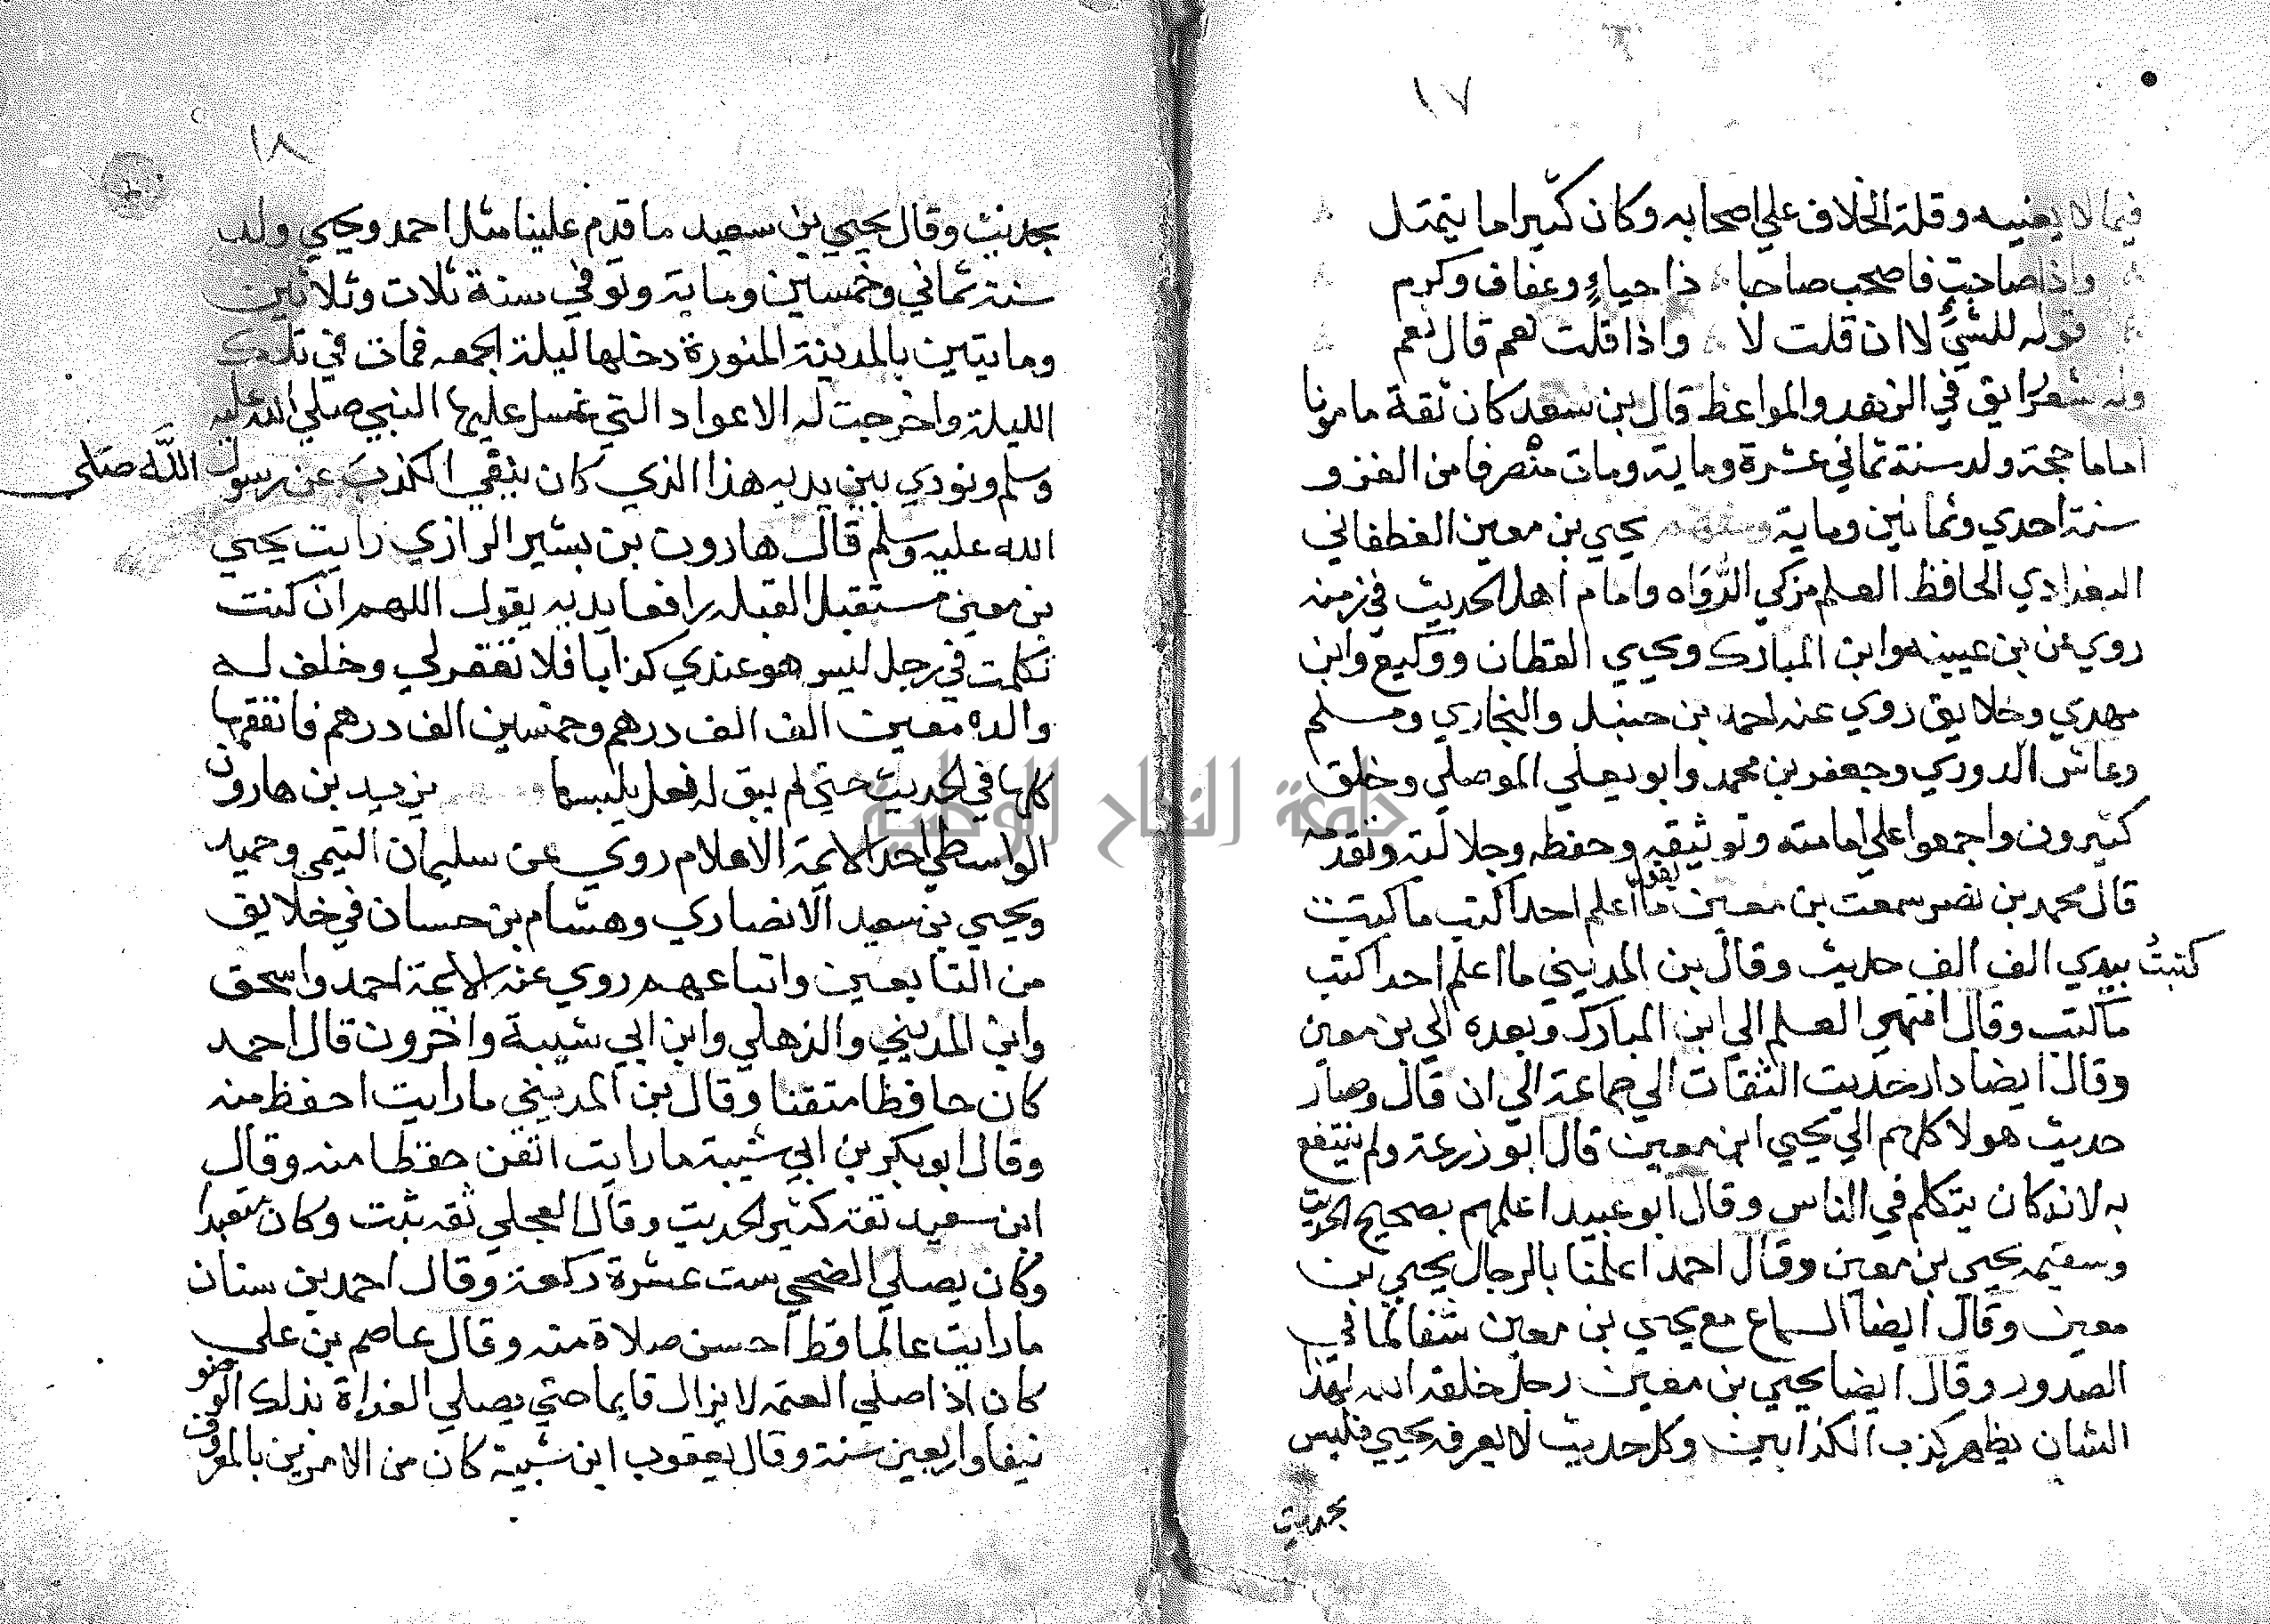 ١٧
فيما لا يعنيه وقلة الخلاف علي اصحابه وكان كثيرا ما يتمثل
واذا صاحبت فاصحب صاحبا ذا حياءٍ وعفاف وكرم
قوله للشئ لا ان قلت لا واذا قلت نعم قال نعم
وله شعر رايق في الزهد والمواعظ قال بن سعد كان ثقة مامونا
اماما حجة ولد سنة ثماني عشرة وماية ومات منصرفا من الغزو
سنة احدي وثمانين وماية ومنهم يحيي بن معين الغطفاني
البغدادي الحافظ العلم مزكي الرواه وامام اهل الحديث في زمنه
روي عن بن عيينه وابن المبارك ويحيي القطان ووكيع وابن
مهدي وخلايق روي عنه احمد بن حنبل والبخاري ومسلم
وعباس الدوري وجعفر بن محمد وابو يعلي الموصلي وخلق
كثيرون واجمعوا علي امامته وتوثيقه وحفظه وجلالته وتقدمه
قال محمد بن نصر سمعت بن معين يقول ما اعلم احدا كتب ما كتبت
كتبتُ بيدي الف الف حديث وقال بن المديني ما اعلم احدا كتب
ما كتب وقال انتهي العلم الي ابن المبارك وبعده الي بن معين
وقال ايضا دار حديث الثقات الي جماعة الي ان قال وصار
حديث هولا كلهم الي يحيي ابن معين قال ابو زرعة ولم ينتفع
به لانه كان يتكلم في الناس وقال ابو عبيد اعلمهم بصحيح الحديث
وسقيمه يحيي بن معين وقال احمد اعلمنا بالرجال يحيي بن
معين وقال ايضا السماع مع يحيي بن معين شفا لما في
الصدور وقال ايضا يحيي بن معين رجل خلقه الله لهذا
الشان يظهر كذب الكذابين وكل حديث لا يعرفه يحيي فليس
بحديث
١٨
بحديث وقال يحيي بن سعيد ما قدم علينا مثل احمد ويحيي ولد
سنة ثماني وخمسين وماية وتوفي سنة ثلاث وثلاثين
ومايتين بالمدينة المنورة دخلها ليلة الجمعه فمات في تلك
الليلة واخرجت له الاعواد التي غسل عليها النبي صلي الله عليه
وسلم ونودي بين يديه هذا الذي كان ينفي الكذب عن رسول اللَّه صَلى
الله عليه وسلم قال هارون بن بشير الرازي رايت يحيي
بن معين مستقبل القبله رافعا يديه يقول اللهم ان كنت
تكلمت في رجل ليس هو عندي كذابا فلا تغفر لي وخلف له
والده معين الف الف درهم وخمسين الف درهم فانفقها
كلها في الحديث حتي لم يبق له نعل يلبسها يزيد بن هارون
الواسطي احد الايمة الاعلام روي عن سليمان التيمي وحميد
ويحيي بن سعيد الانصاري وهشام بن حسان في خلايق
من التابعين واتباعهم روي عنه الايمة احمد واسحق
وابن المديني والذهلي وابن ابي شيبة واخرون قال احمد
كان حافظا متقنا وقال بن المديني ما رايت احفظ منه
وقال ابو بكر بن ابي شيبة ما رايت اتقن حفظا منه وقال
ابن سعيد ثقة كثير الحديث وقال العجلي ثقه ثبت وكان متعبدا
وكان يصلي الضحي ست عشرة ركعة وقال احمد بن سنان
ما رايت عالما قط احسن صلاة منه وقال عاصم بن علي
كان اذا صلي العتمه لا يزال قايما حتي يصلي الغداة بذلك الوضو
نيفا واربعين سنة وقال يعقوب ابن شيبة كان من الامرين بالمعروف
جامعة النجاح الوطنية